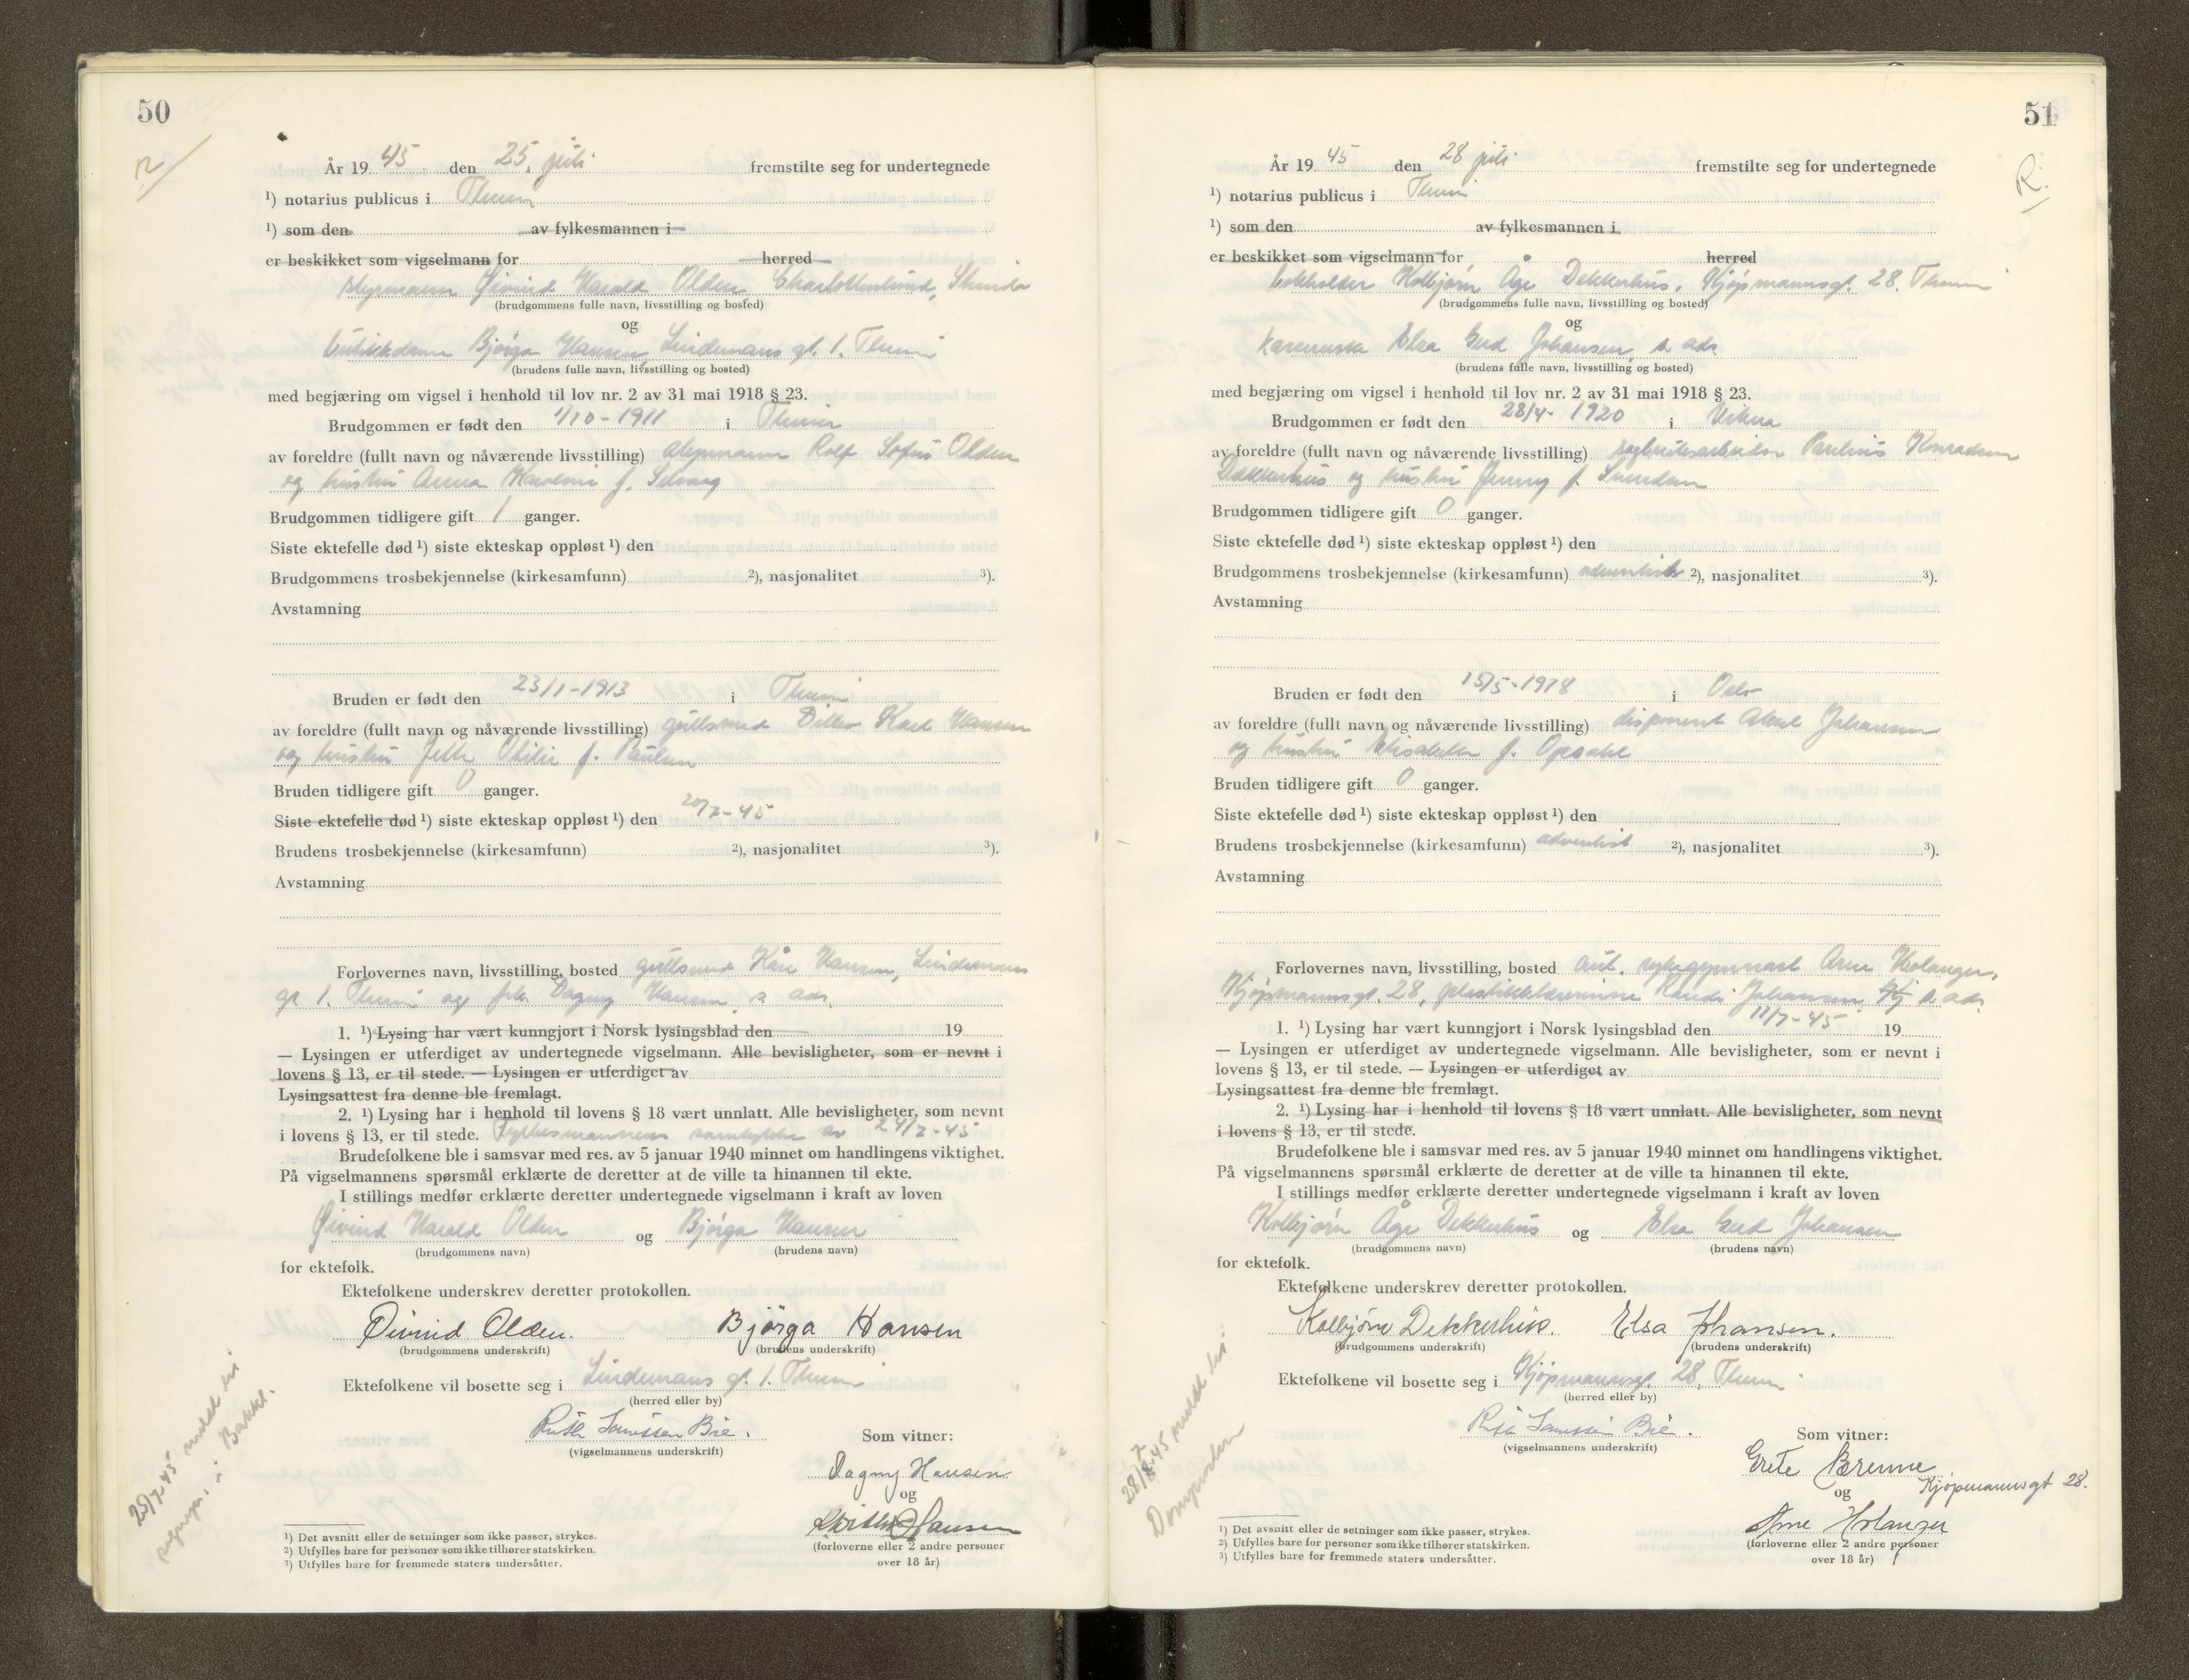 50
År 1945 den 25. juli fremstilte seg for undertegnede
¹) notarius publicus i
¹) som den av fylkesmannen i
er beskikket som vigselmann for herred
styrmann Øivind Harald Olden, Charlottenlund, Strinda
(brudgommens fulle navn, livsstilling og bosted)
og
Bjørga Hansen, Lindemans gt. 1.
(brudens fulle navn, livsstilling og bosted)
med begjæring om vigsel i henhold til lov nr. 2 av 31 mai 1918 § 23.
Brudgommen er født den 1/10-1911 i
av foreldre (fullt navn og nåværende livsstilling) Rolf Sofus Olden
og hustru Anna f.
Brudgommen tidligere gift 1 ganger.
Siste ektefelle død ¹) siste ekteskap oppløst ¹) den
Brudgommens trosbekjennelse (kirkesamfunn) ²), nasjonalitet ³).
Avstamning
Bruden er født den 23/1-1913 i
av foreldre (fullt navn og nåværende livsstilling) gullsmed Karl Hansen
og hustru f. Paulsen
Bruden tidligere gift 0 ganger.
Siste ektefelle død ¹) siste ekteskap oppløst ¹) den 20/7-45
Brudens trosbekjennelse (kirkesamfunn) ²), nasjonalitet ³).
Avstamning
Forlovernes navn, livsstilling, bosted gullsmed Hansen, Lindemans
gt 1. og frk. Dagny Hansen, s. adr.
1. ¹) Lysing har vært kunngjort i Norsk lysingsblad den 19
— Lysingen er utferdiget av undertegnede vigselmann. Alle bevisligheter, som er nevnt i
lovens § 13, er til stede. — Lysingen er utferdiget av
Lysingsattest fra denne ble fremlagt.
2. ¹) Lysing har i henhold til lovens § 18 vært unnlatt. Alle bevisligheter, som nevnt
i lovens § 13, er til stede. Fylkesmannens samtykke av 24/7-45
Brudefolkene ble i samsvar med res. av 5 januar 1940 minnet om handlingens viktighet.
På vigselmannens spørsmål erklærte de deretter at de ville ta hinannen til ekte.
I stillings medfør erklærte deretter undertegnede vigselmann i kraft av loven
Øivind Harald Olden og Bjørga Hansen
(brudgommens navn) (brudens navn)
for ektefolk.
Ektefolkene underskrev deretter protokollen.
Øivind Olden. Bjørga Hansen
(brudgommens underskrift) (brudens underskrift)
Ektefolkene vil bosette seg i Lindemans gt. 1.
(herred eller by)
(vigselmannens underskrift)
Som vitner:
Dagny Hansen
og
Hansen
(forloverne eller 2 andre personer
over 18 år)
25/7-45 meldt til
¹) Det avsnitt eller de setninger som ikke passer, strykes.
²) Utfylles bare for personer som ikke tilhører statskirken.
³) Utfylles bare for fremmede staters undersåtter.
51
R.
År 1945 den 28 juli fremstilte seg for undertegnede
¹) notarius publicus i
¹) som den av fylkesmannen i
er beskikket som vigselmann for herred
bokholder Kolbjørn Åge Dekkerhus, Kjøpmannsgt. 28.
(brudgommens fulle navn, livsstilling og bosted)
og
Elsa Gerd Johansen, s. adr.
(brudens fulle navn, livsstilling og bosted)
med begjæring om vigsel i henhold til lov nr. 2 av 31 mai 1918 § 23.
Brudgommen er født den 28/4-1920 i Vikna
av foreldre (fullt navn og nåværende livsstilling) Paulius Konradsen
Dekkerhus og hustru Jenny f.
Brudgommen tidligere gift 0 ganger.
Siste ektefelle død ¹) siste ekteskap oppløst ¹) den
Brudgommens trosbekjennelse (kirkesamfunn) adventist ²), nasjonalitet ³).
Avstamning
Bruden er født den 15/5-1918 i Oslo
av foreldre (fullt navn og nåværende livsstilling) disponent Johansen
og hustru f. Opsahl
Bruden tidligere gift 0 ganger.
Siste ektefelle død ¹) siste ekteskap oppløst ¹) den
Brudens trosbekjennelse (kirkesamfunn) adventist ²), nasjonalitet ³).
Avstamning
Forlovernes navn, livsstilling, bosted aut. sykegymnast Arne
Kjøpmannsgt. 28, Randi Johansen, s. adr.
1. ¹) Lysing har vært kunngjort i Norsk lysingsblad den 11/7-45 19
— Lysingen er utferdiget av undertegnede vigselmann. Alle bevisligheter, som er nevnt i
lovens § 13, er til stede. — Lysingen er utferdiget av
Lysingsattest fra denne ble fremlagt.
2. ¹) Lysing har i henhold til lovens § 18 vært unnlatt. Alle bevisligheter, som nevnt
i lovens § 13, er til stede.
Brudefolkene ble i samsvar med res. av 5 januar 1940 minnet om handlingens viktighet.
På vigselmannens spørsmål erklærte de deretter at de ville ta hinannen til ekte.
I stillings medfør erklærte deretter undertegnede vigselmann i kraft av loven
Kolbjørn Åge Dekkerhus og Elsa Gerd Johansen
(brudgommens navn) (brudens navn)
for ektefolk.
Ektefolkene underskrev deretter protokollen.
Kolbjørn Dekkerhus. Elsa Johansen.
(brudgommens underskrift) (brudens underskrift)
Ektefolkene vil bosette seg i Kjøpmannsgt. 28,
(herred eller by)
(vigselmannens underskrift)
Som vitner:
Grete Brenne
Kjøpmannsgt 28.
og
Arne
(forloverne eller 2 andre personer
over 18 år)
meldt til
Domprosten
¹) Det avsnitt eller de setninger som ikke passer, strykes.
²) Utfylles bare for personer som ikke tilhører statskirken.
³) Utfylles bare for fremmede staters undersåtter.